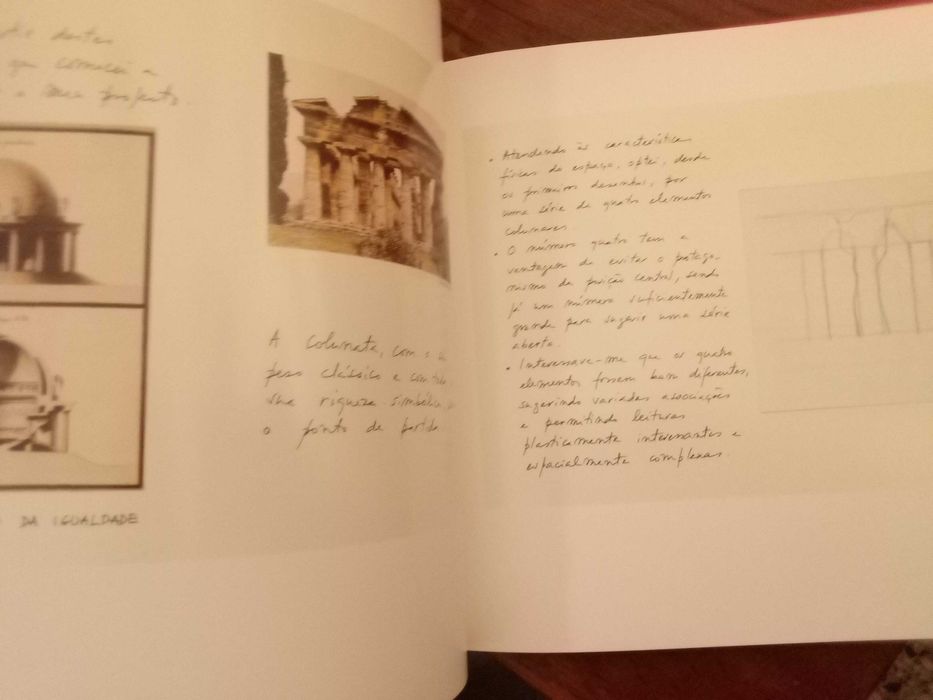 destas
que comecei a
o meu projecto.
DA IGUALDADE
A colunata, com o
peso clássico e com toda
sua riqueza simbólica,
o ponto de partida
• Atendendo às características
físicas do espaço, optei, desde
os primeiros desenhos, por
uma série de quatro elementos
colunares.
• O número quatro tem a
vantagem de evitar o protago-
nismo da posição central, sendo
já um número suficientemente
grande para sugerir uma série
aberta.
• Interessava-me que os quatro
elementos fossem bem diferentes,
sugerindo variadas associações
e permitindo leituras
plasticamente interessantes e
espacialmente complexas.